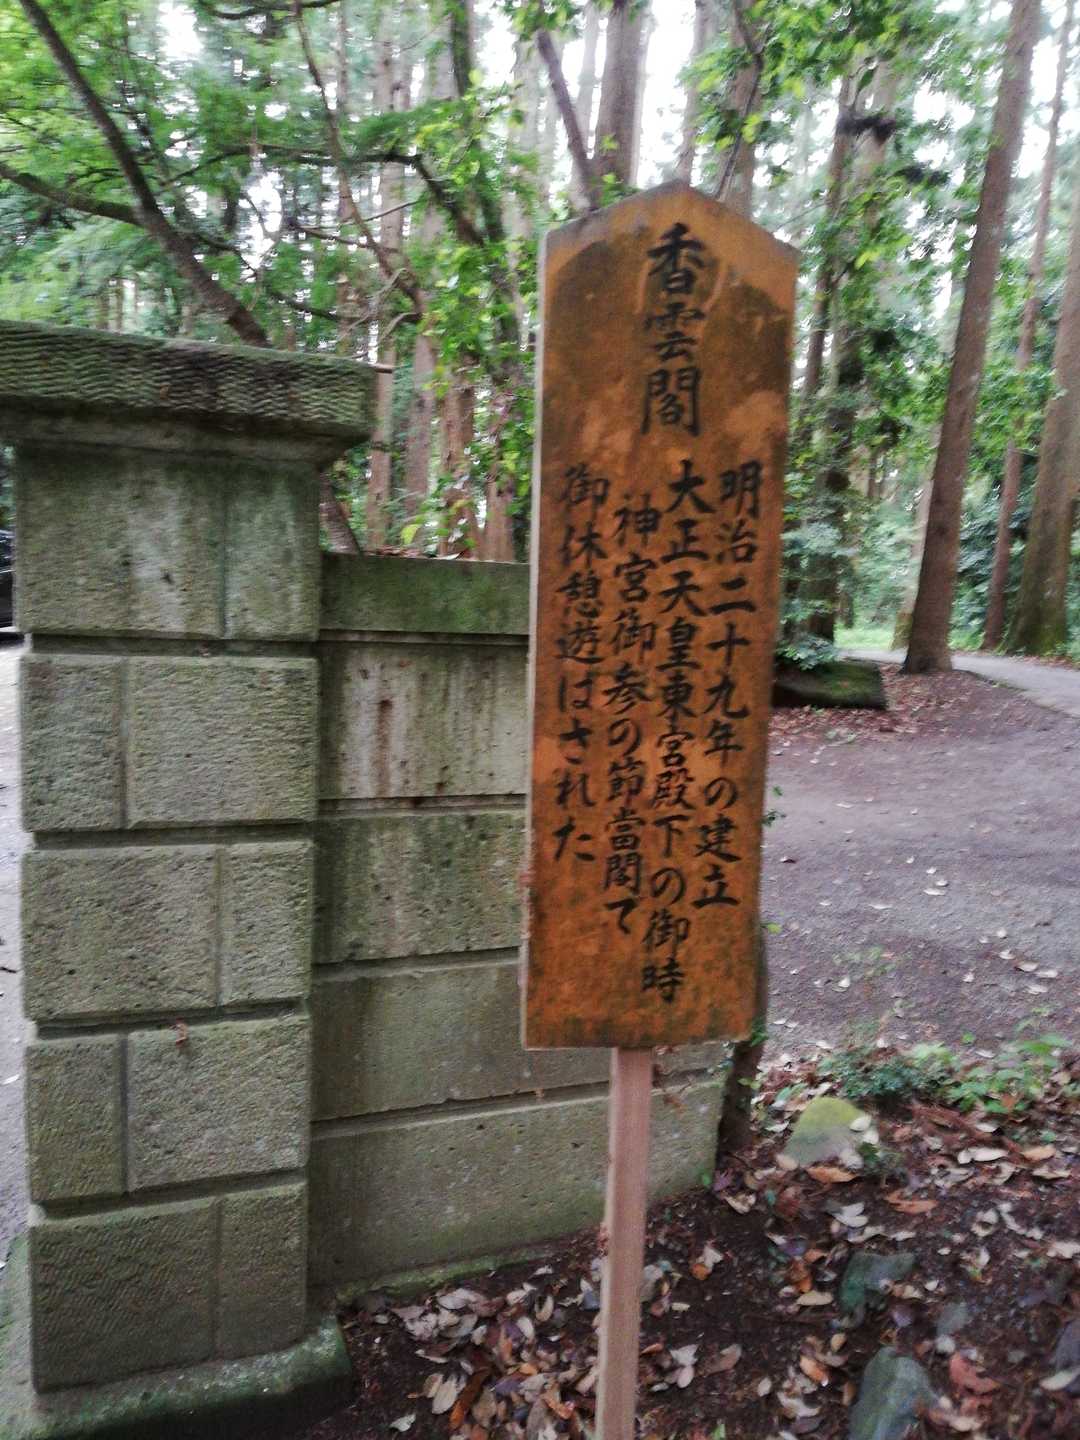 香雲閣
明治二十九年の建立
大正天皇東宮殿下の御時
神宮御参の節當閣て
御休憩遊はされた